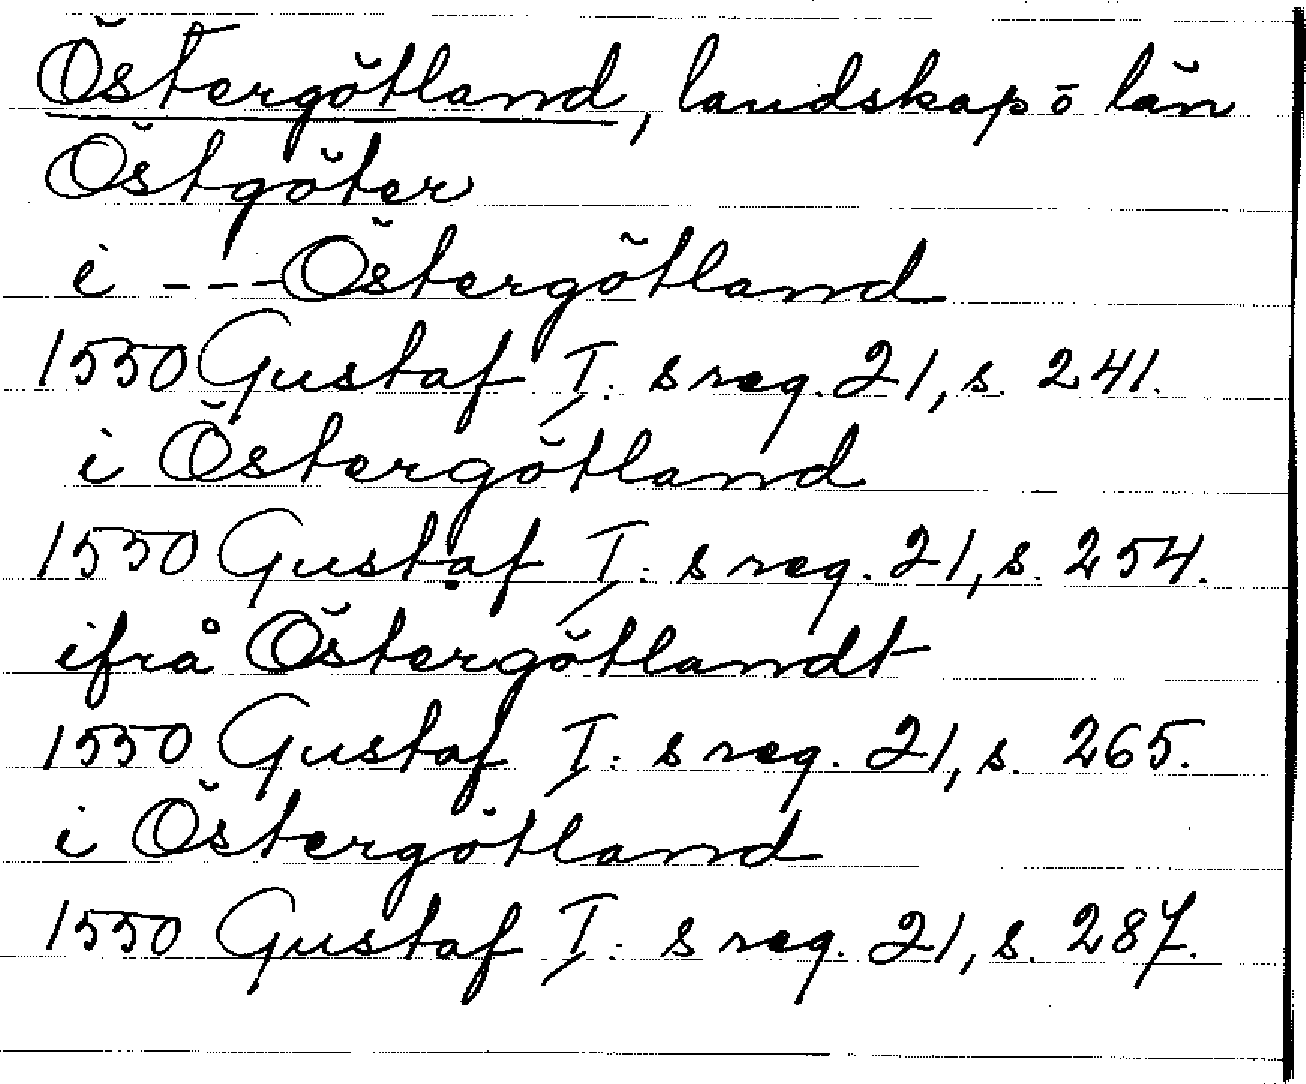 Östergötland, landskap o län
Östgöter
i --- Östergötland
1550 Gustaf I:s reg. 21, s. 241.
i Östergötland
1550 Gustaf I:s reg. 21, s. 254.
ifrå Östergötlandt
1550 Gustaf I:s reg. 21, s. 265.
i Östergötland
1550 Gustaf I:s reg. 21, s. 287.